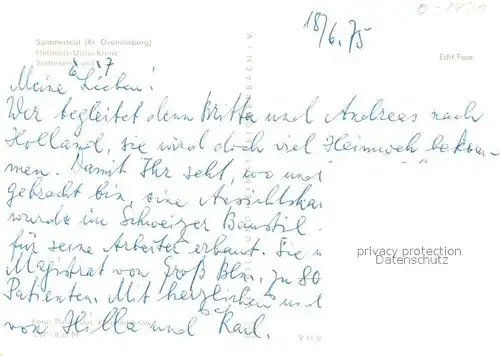 18/6. 75
Sommerfeld (Kr. Oranienburg)
Hellmuth-Ulrici-Klinik
Echt Foto
6 7
Meine Lieben!
Wer begleitet denn Britta und Andreas nach
Holland, sie wird doch viel Heimweh bekom-
men. Damit Ihr seht, wo und
gebracht bin, eine Ansichtskar
wurde im Schweizer Baustil
für seine Arbeiter erbaut. Sie
Magistrat von Groß Bln, zu 80
Patienten. Mit herzlichen
von Hilla und Karl.
privacy protection
Datenschutz